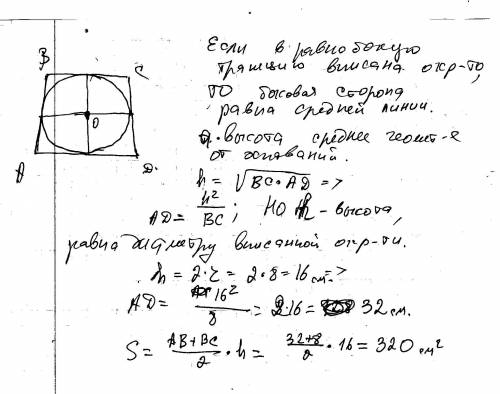 B
C
O
A
D.
Если в равнобокую
трапецию вписана окр-ть,
то боковая сторона
равна средней линии.
а высота среднее геомет-е
от оснований.
h = √BC·AD =>
AD = h²/BC; но h - высота,
равна диаметру вписанной окр-ти.
h = 2·r = 2·8 = 16 см. =>
AD = 16²/8 = 2·16 = 32 см.
S = AB+BC/2 · h = 32+8/2 · 16 = 320 см²